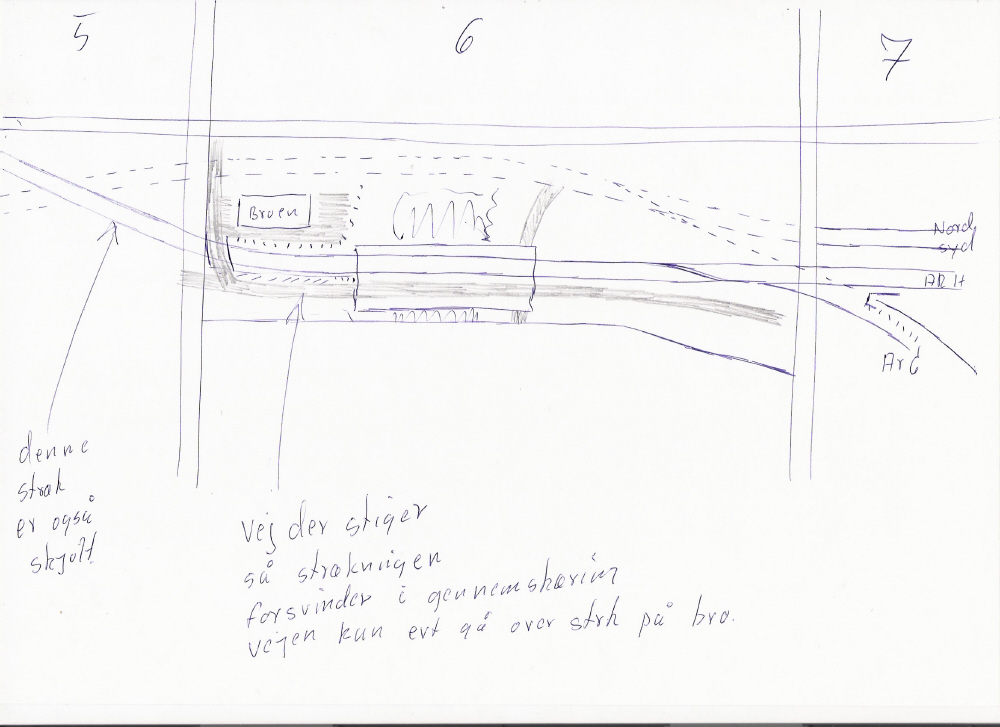 5
6
7
Broen
Nord
syd
denne
strak
er også
skjult
vej der stiger
så strakningen
forsvinder i gennemskæring
vejen kan evt gå over strk på bro.